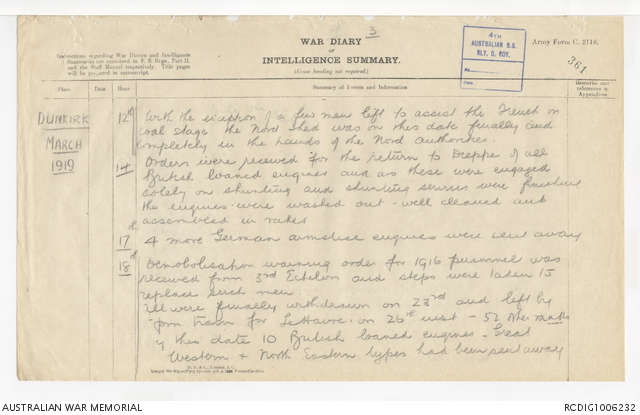 3
WAR DIARY
or
INTELLIGENCE SUMMARY.
(Erase heading not required.)
Instructions regarding War Diaries and Intelligence
Summaries are contained in F. S. Regs., Part II.
and the Staff Manual respectively. Title pages
will be prepared in manuscript.
4TH
AUSTRALIAN B.G.
RLY. O. COY.
No.
Date
Army Form C. 2118.
361
Place
Date
Hour
Summary of Events and Information
Remarks and
references to
Appendices
DUNKIRK
MARCH
1919
12th With the exception of a few men left to assist the French on
coal stage the Nord Shed was on this date finally and
completely in the hands of the Nord Authorities.
14 Orders were received for the return to Dieppe of all
British loaned engines and as these were engaged
solely on shunting and shunting services were finishing
the engines were washed out - well cleaned and
assembled in rakes
17th 4 more German armistice engines were sent away
18th Demobolisation warning order for 1916 personnel was
received from 3rd Echelon and steps were taken to
replace such men
All were finally withdrawn on 23rd and left by
train for Le Havre on 26th inst - 52 other ranks
By this date 10 British loaned engines - Great
Western & North Eastern types had been sent away
AUSTRALIAN WAR MEMORIAL
RCDIG1006232